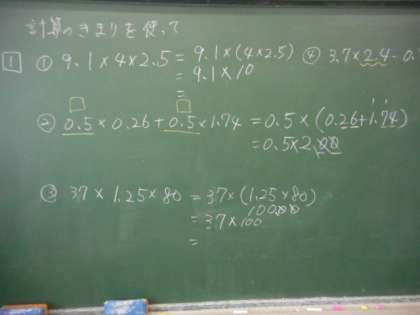 計算のきまりを使って
1 ① 9.1×4×2.5 = 9.1×(4×2.5)
= 9.1×10
=
④ 3.7×2.4-0.
② 0.5×0.26+0.5×1.74 = 0.5×(0.26+1.74)
= 0.5×2.00
③ 37×1.25×80 = 37×(1.25×80)
100.00
= 37×100
=